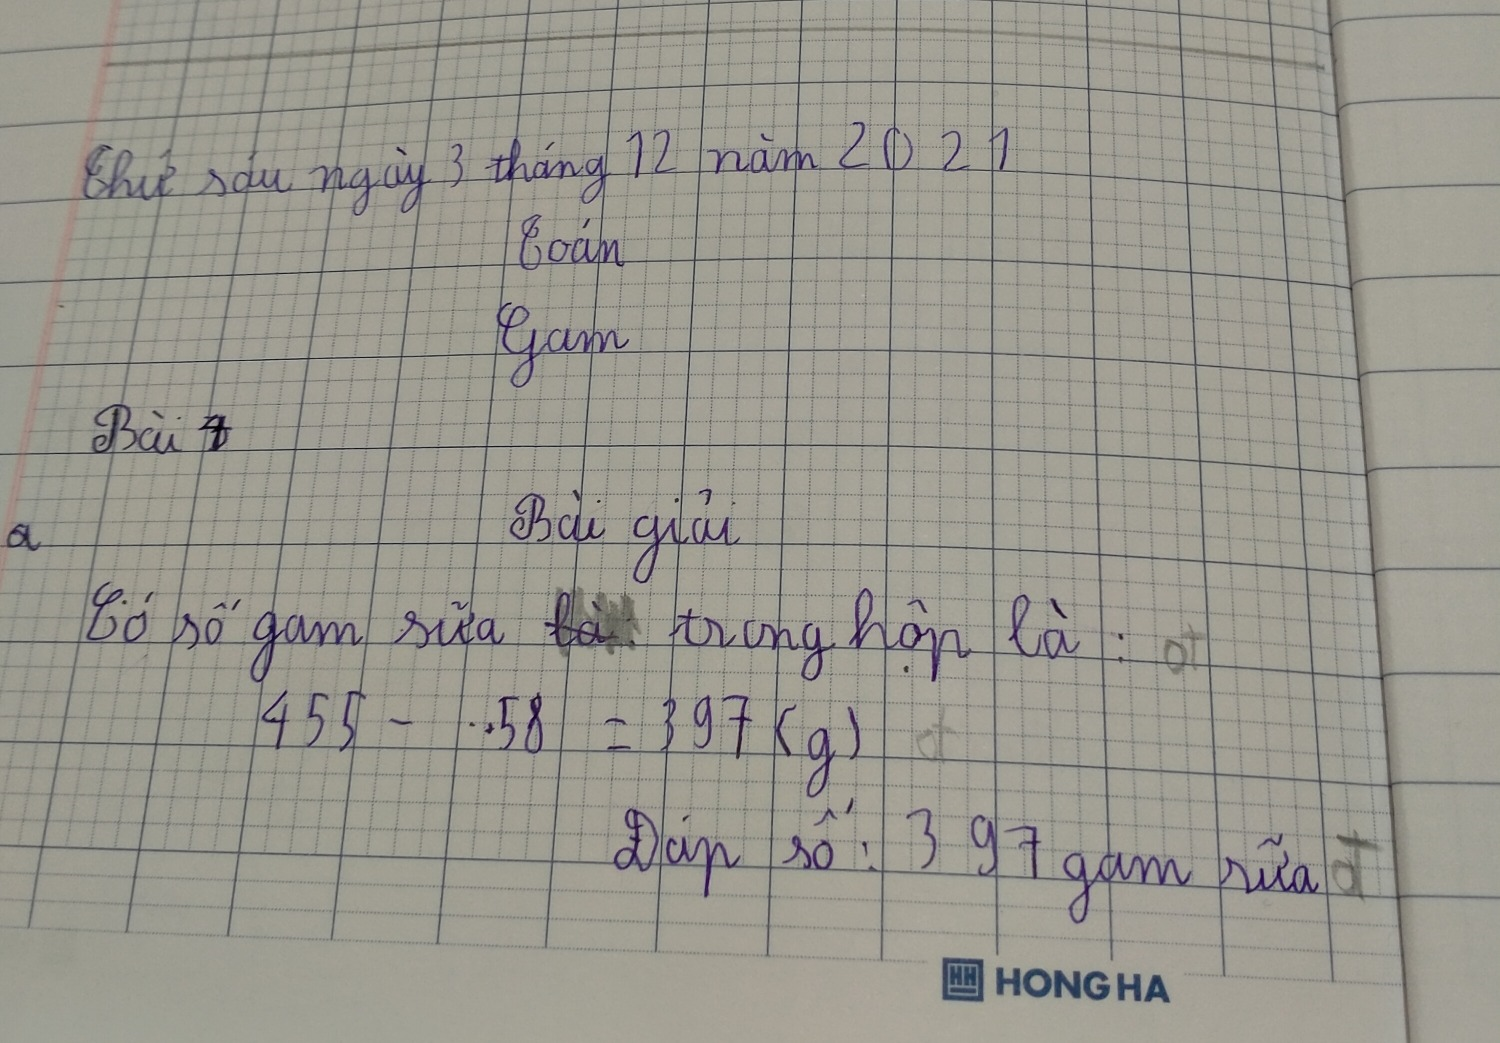 Thứ sáu ngày 3 tháng 12 năm 2021
Toán
Gam
Bài 4
Bài giải
a
Có số gam sữa trong hộp là: đ
455 - 58 = 397 (g) đ
Đáp số: 397 gam sữa đ
HONG HA